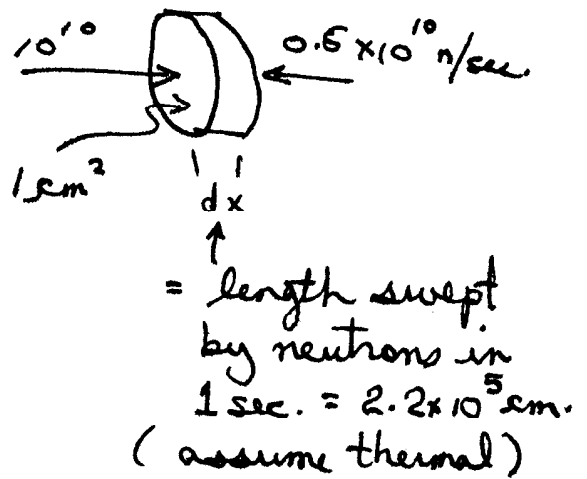 10¹⁰
0.6 × 10¹⁰ n/sec.
1 cm²
dx
= length swept
by neutrons in
1 sec. = 2.2 × 10⁵ cm.
( assume thermal )